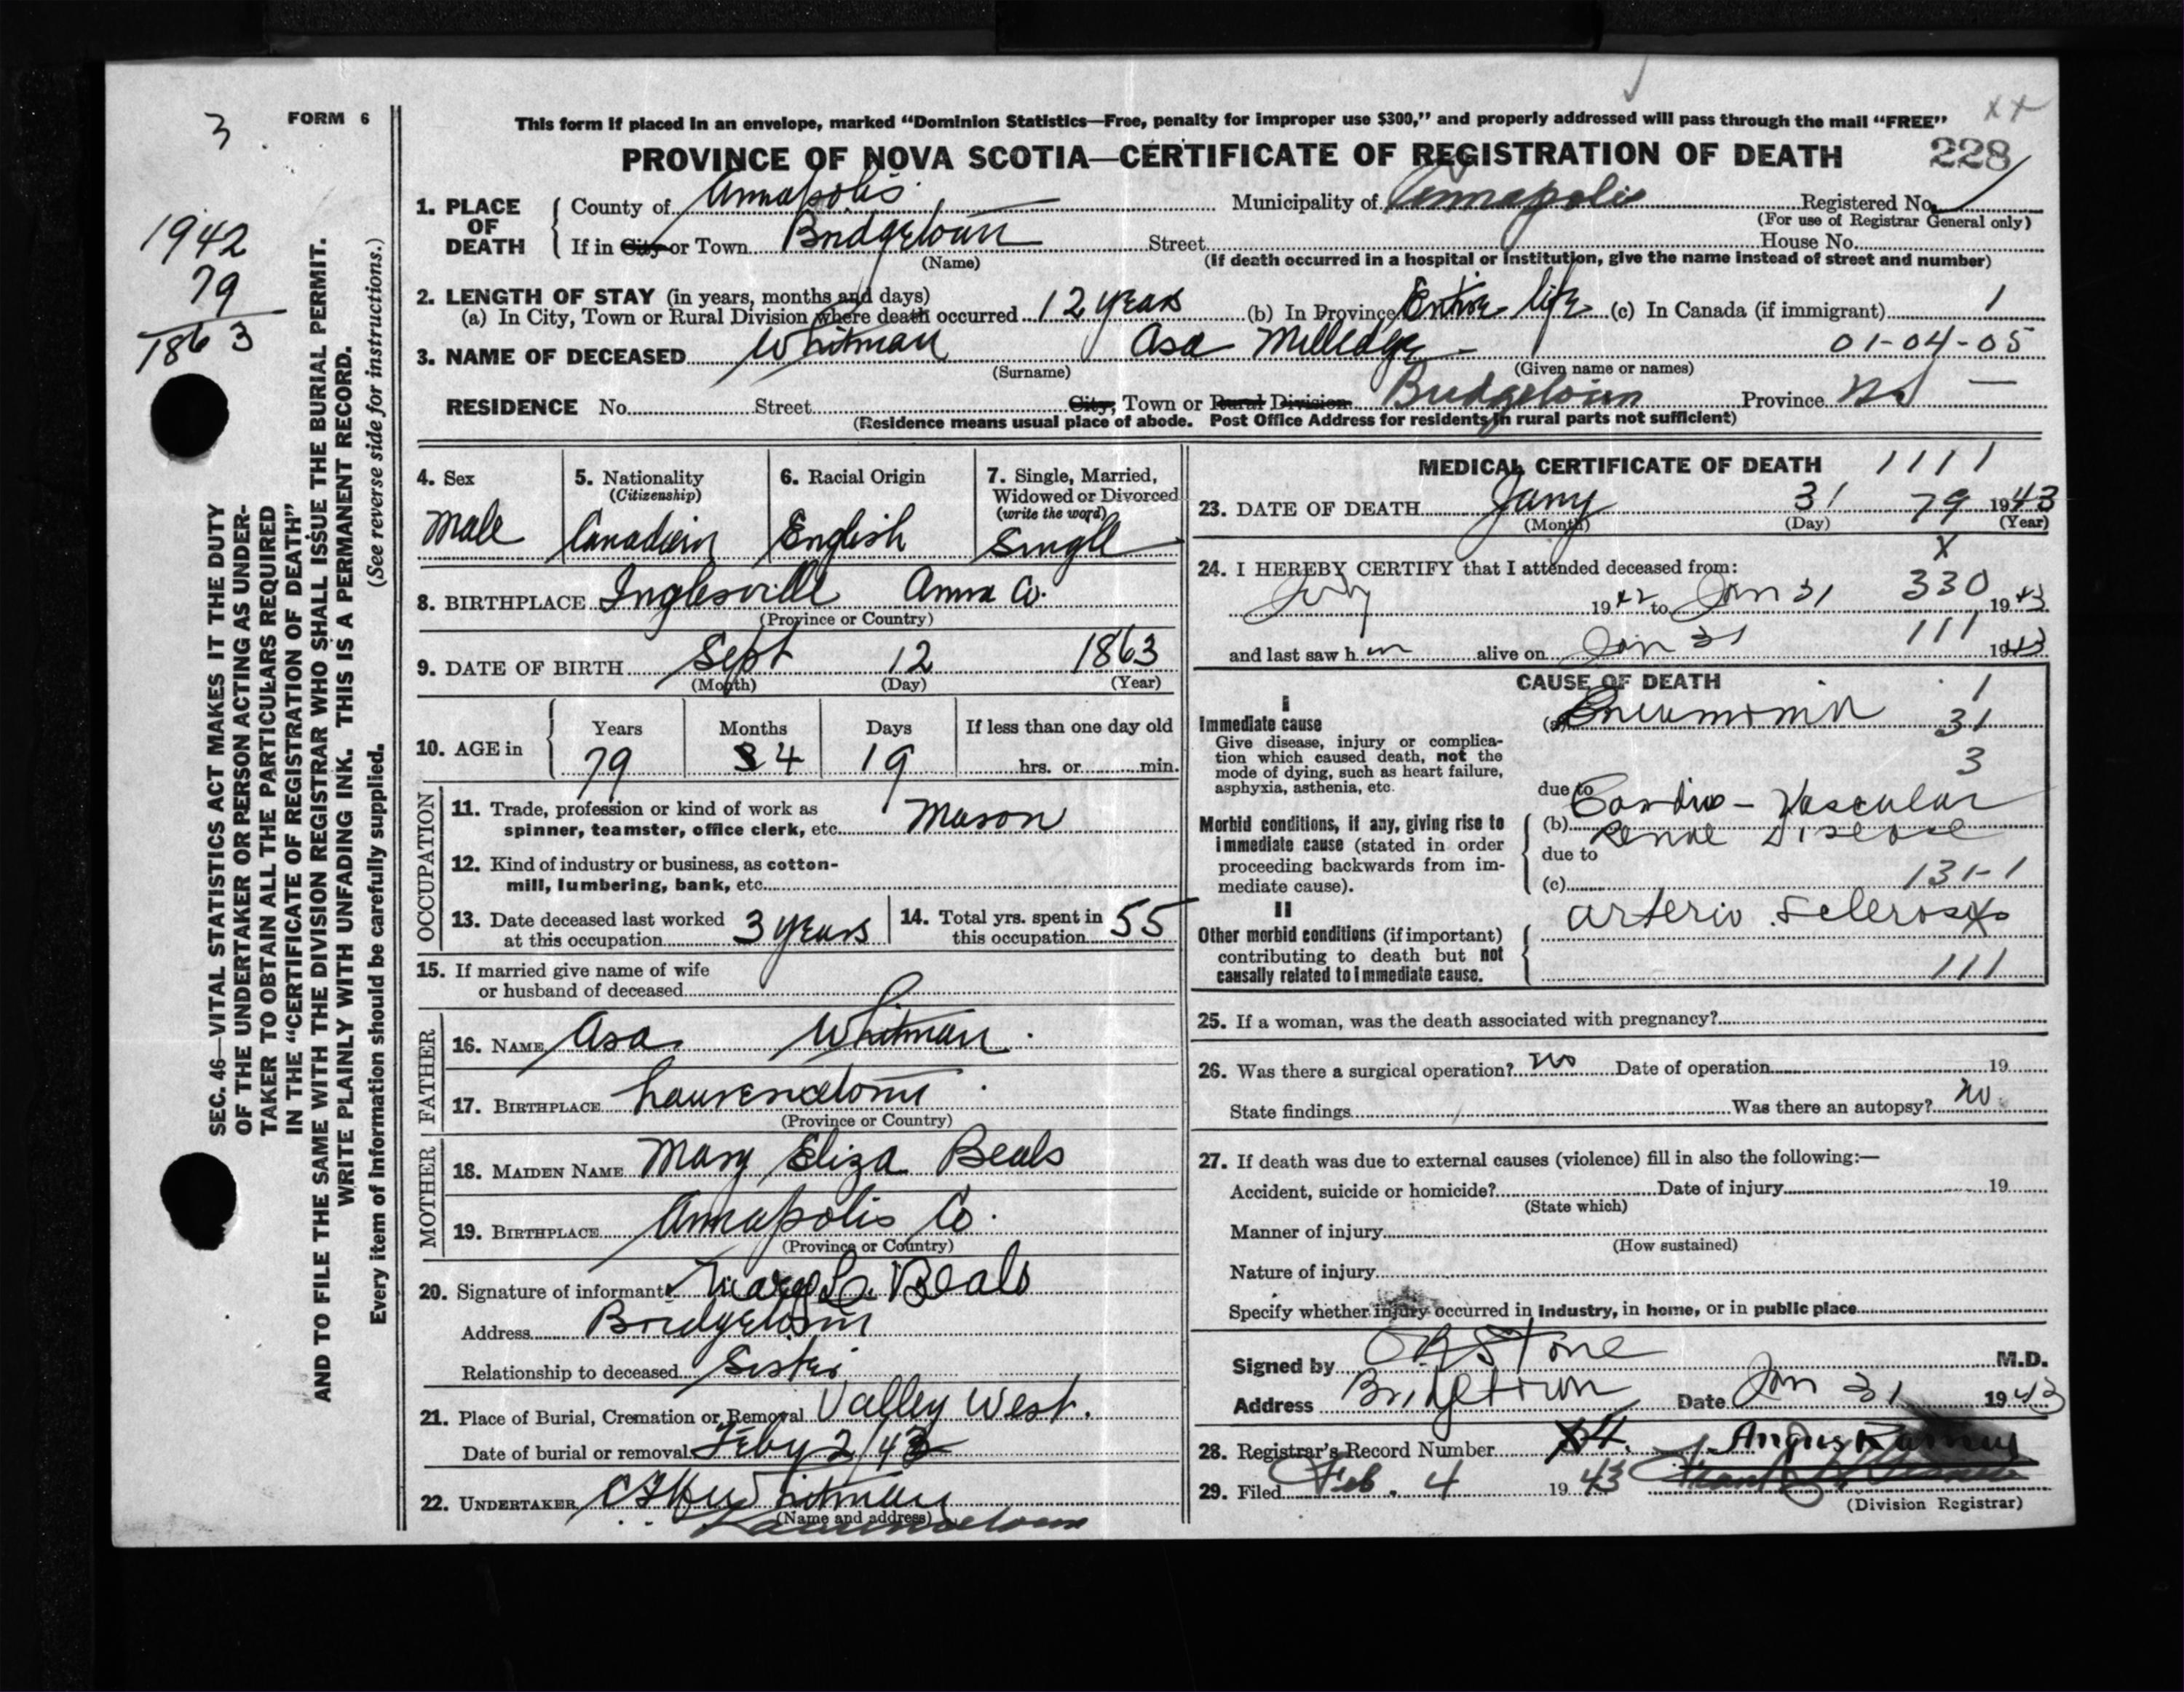 3 FORM 6
1942
79
1863
SEC. 46—VITAL STATISTICS ACT MAKES IT THE DUTY
OF THE UNDERTAKER OR PERSON ACTING AS UNDER-
TAKER TO OBTAIN ALL THE PARTICULARS REQUIRED
IN THE "CERTIFICATE OF REGISTRATION OF DEATH"
AND TO FILE THE SAME WITH THE DIVISION REGISTRAR WHO SHALL ISSUE THE BURIAL PERMIT.
WRITE PLAINLY WITH UNFADING INK. THIS IS A PERMANENT RECORD.
Every item of information should be carefully supplied. (See reverse side for instructions.)
This form if placed in an envelope, marked "Dominion Statistics—Free, penalty for improper use $300," and properly addressed will pass through the mail "FREE" xx
PROVINCE OF NOVA SCOTIA—CERTIFICATE OF REGISTRATION OF DEATH 228
1. PLACE OF DEATH County of Annapolis Municipality of Annapolis Registered No.
(For use of Registrar General only)
If in City or Town Bridgetown Street House No.
(Name) (If death occurred in a hospital or institution, give the name instead of street and number)
2. LENGTH OF STAY (in years, months and days)
(a) In City, Town or Rural Division where death occurred 12 years (b) In Province Entire life (c) In Canada (if immigrant) 1
3. NAME OF DECEASED Whitman Asa Milledge 01-04-05
(Surname) (Given name or names)
RESIDENCE No. Street City, Town or Rural Division Bridgetown Province NS
(Residence means usual place of abode. Post Office Address for residents in rural parts not sufficient)
4. Sex 5. Nationality 6. Racial Origin 7. Single, Married,
(Citizenship) Widowed or Divorced
(write the word)
Male Canadian English Single
8. BIRTHPLACE Inglesville Anna Co.
(Province or Country)
9. DATE OF BIRTH Sept 12 1863
(Month) (Day) (Year)
10. AGE in Years Months Days If less than one day old
79 4 19 hrs. or min.
OCCUPATION
11. Trade, profession or kind of work as
spinner, teamster, office clerk, etc. Mason
12. Kind of industry or business, as cotton-
mill, lumbering, bank, etc.
13. Date deceased last worked
at this occupation 3 years
14. Total yrs. spent in
this occupation 55
15. If married give name of wife
or husband of deceased
FATHER
16. NAME Asa Whitman
17. BIRTHPLACE Lawrencetown
(Province or Country)
MOTHER
18. MAIDEN NAME Mary Eliza Beals
19. BIRTHPLACE Annapolis Co.
(Province or Country)
20. Signature of informant Mary L. Beals
Address Bridgetown
Relationship to deceased Sister
21. Place of Burial, Cremation or Removal Valley West.
Date of burial or removal Feby 2/43
22. UNDERTAKER Whitman
(Name and address)
Lawrencetown
MEDICAL CERTIFICATE OF DEATH 1111
23. DATE OF DEATH Jany 31 79 1943
(Month) (Day) (Year)
x
24. I HEREBY CERTIFY that I attended deceased from:
July 1942 to Jan 31 330 1943
and last saw h im alive on Jan 31 111 1943
CAUSE OF DEATH
I
Immediate cause (a) Pneumonia 1
31
Give disease, injury or complica-
tion which caused death, not the
mode of dying, such as heart failure,
asphyxia, asthenia, etc.
3
due to Cardio-Vascular
Morbid conditions, if any, giving rise to
immediate cause (stated in order
proceeding backwards from im-
mediate cause).
(b) Renal Disease
due to
(c) 131-1
II
Other morbid conditions (if important)
contributing to death but not
causally related to immediate cause.
Arterio Sclerosis
111
25. If a woman, was the death associated with pregnancy?
26. Was there a surgical operation? no Date of operation 19
State findings Was there an autopsy? no
27. If death was due to external causes (violence) fill in also the following:—
Accident, suicide or homicide? Date of injury 19
(State which)
Manner of injury
(How sustained)
Nature of injury
Specify whether injury occurred in industry, in home, or in public place
Signed by Stone M.D.
Address Bridgetown Date Jan 31 1943
28. Registrar's Record Number 4. Angus
29. Filed Feb. 4 1943
(Division Registrar)